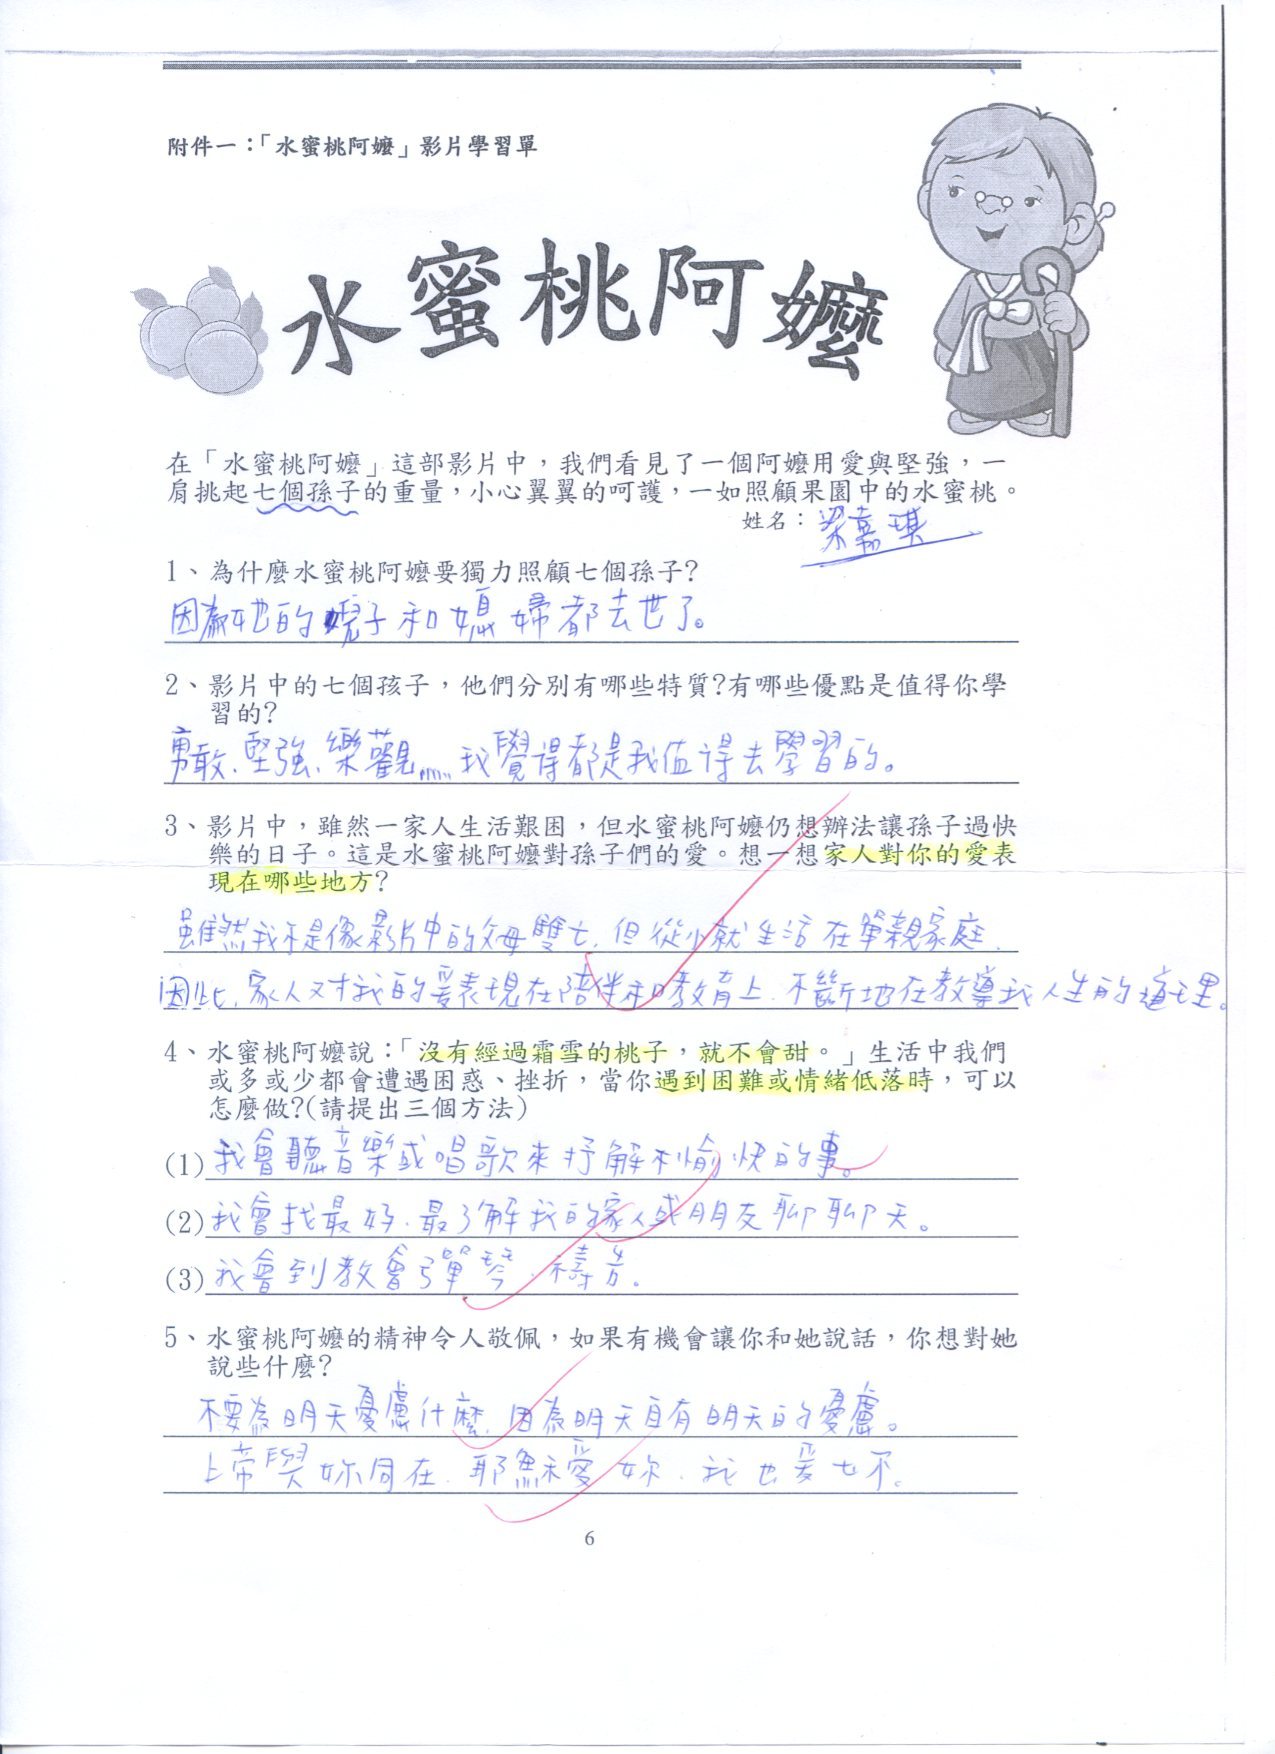 附件一：「水蜜桃阿嬤」影片學習單
水蜜桃阿嬤
在「水蜜桃阿嬤」這部影片中，我們看見了一個阿嬤用愛與堅強，一
肩挑起七個孫子的重量，小心翼翼的呵護，一如照顧果園中的水蜜桃。
姓名：梁嘉琪
1、為什麼水蜜桃阿嬤要獨力照顧七個孫子?
因為她的兒子和媳婦都去世了。
2、影片中的七個孩子，他們分別有哪些特質?有哪些優點是值得你學
習的?
勇敢、堅強、樂觀……我覺得都是我值得去學習的。
3、影片中，雖然一家人生活艱困，但水蜜桃阿嬤仍想辦法讓孫子過快
樂的日子。這是水蜜桃阿嬤對孫子們的愛。想一想家人對你的愛表
現在哪些地方?
雖然我不是像影片中的父母雙亡，但從小就生活在單親家庭，
因此，家人对我的愛表現在陪伴和教育上，不斷地在教導我人生的道理。
4、水蜜桃阿嬤說：「沒有經過霜雪的桃子，就不會甜。」生活中我們
或多或少都會遭遇困惑、挫折，當你遇到困難或情緒低落時，可以
怎麼做?(請提出三個方法)
(1)我會聽音樂或唱歌來抒解不愉快的事。
(2)我會找最好、最了解我的家人或朋友聊聊天。
(3)我會到教會彈琴、禱告。
5、水蜜桃阿嬤的精神令人敬佩，如果有機會讓你和她說話，你想對她
說些什麼?
不要為明天憂慮什麼，因為明天自有明天的憂慮。
上帝與妳同在，耶穌愛妳，我也爱
6